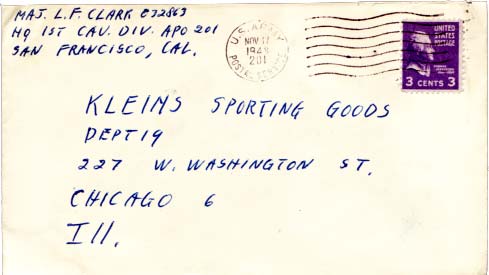 MAJ. L.F. CLARK O32863
HQ 1ST CAV. DIV. APO 201
SAN FRANCISCO, CAL.
U.S. ARMY
NOV
194
201
POSTAL SERVICE
UNITED
STATES
POSTAGE
3 CENTS 3
KLEINS SPORTING GOODS
DEPT 19
227 W. WASHINGTON ST.
CHICAGO 6
Ill.